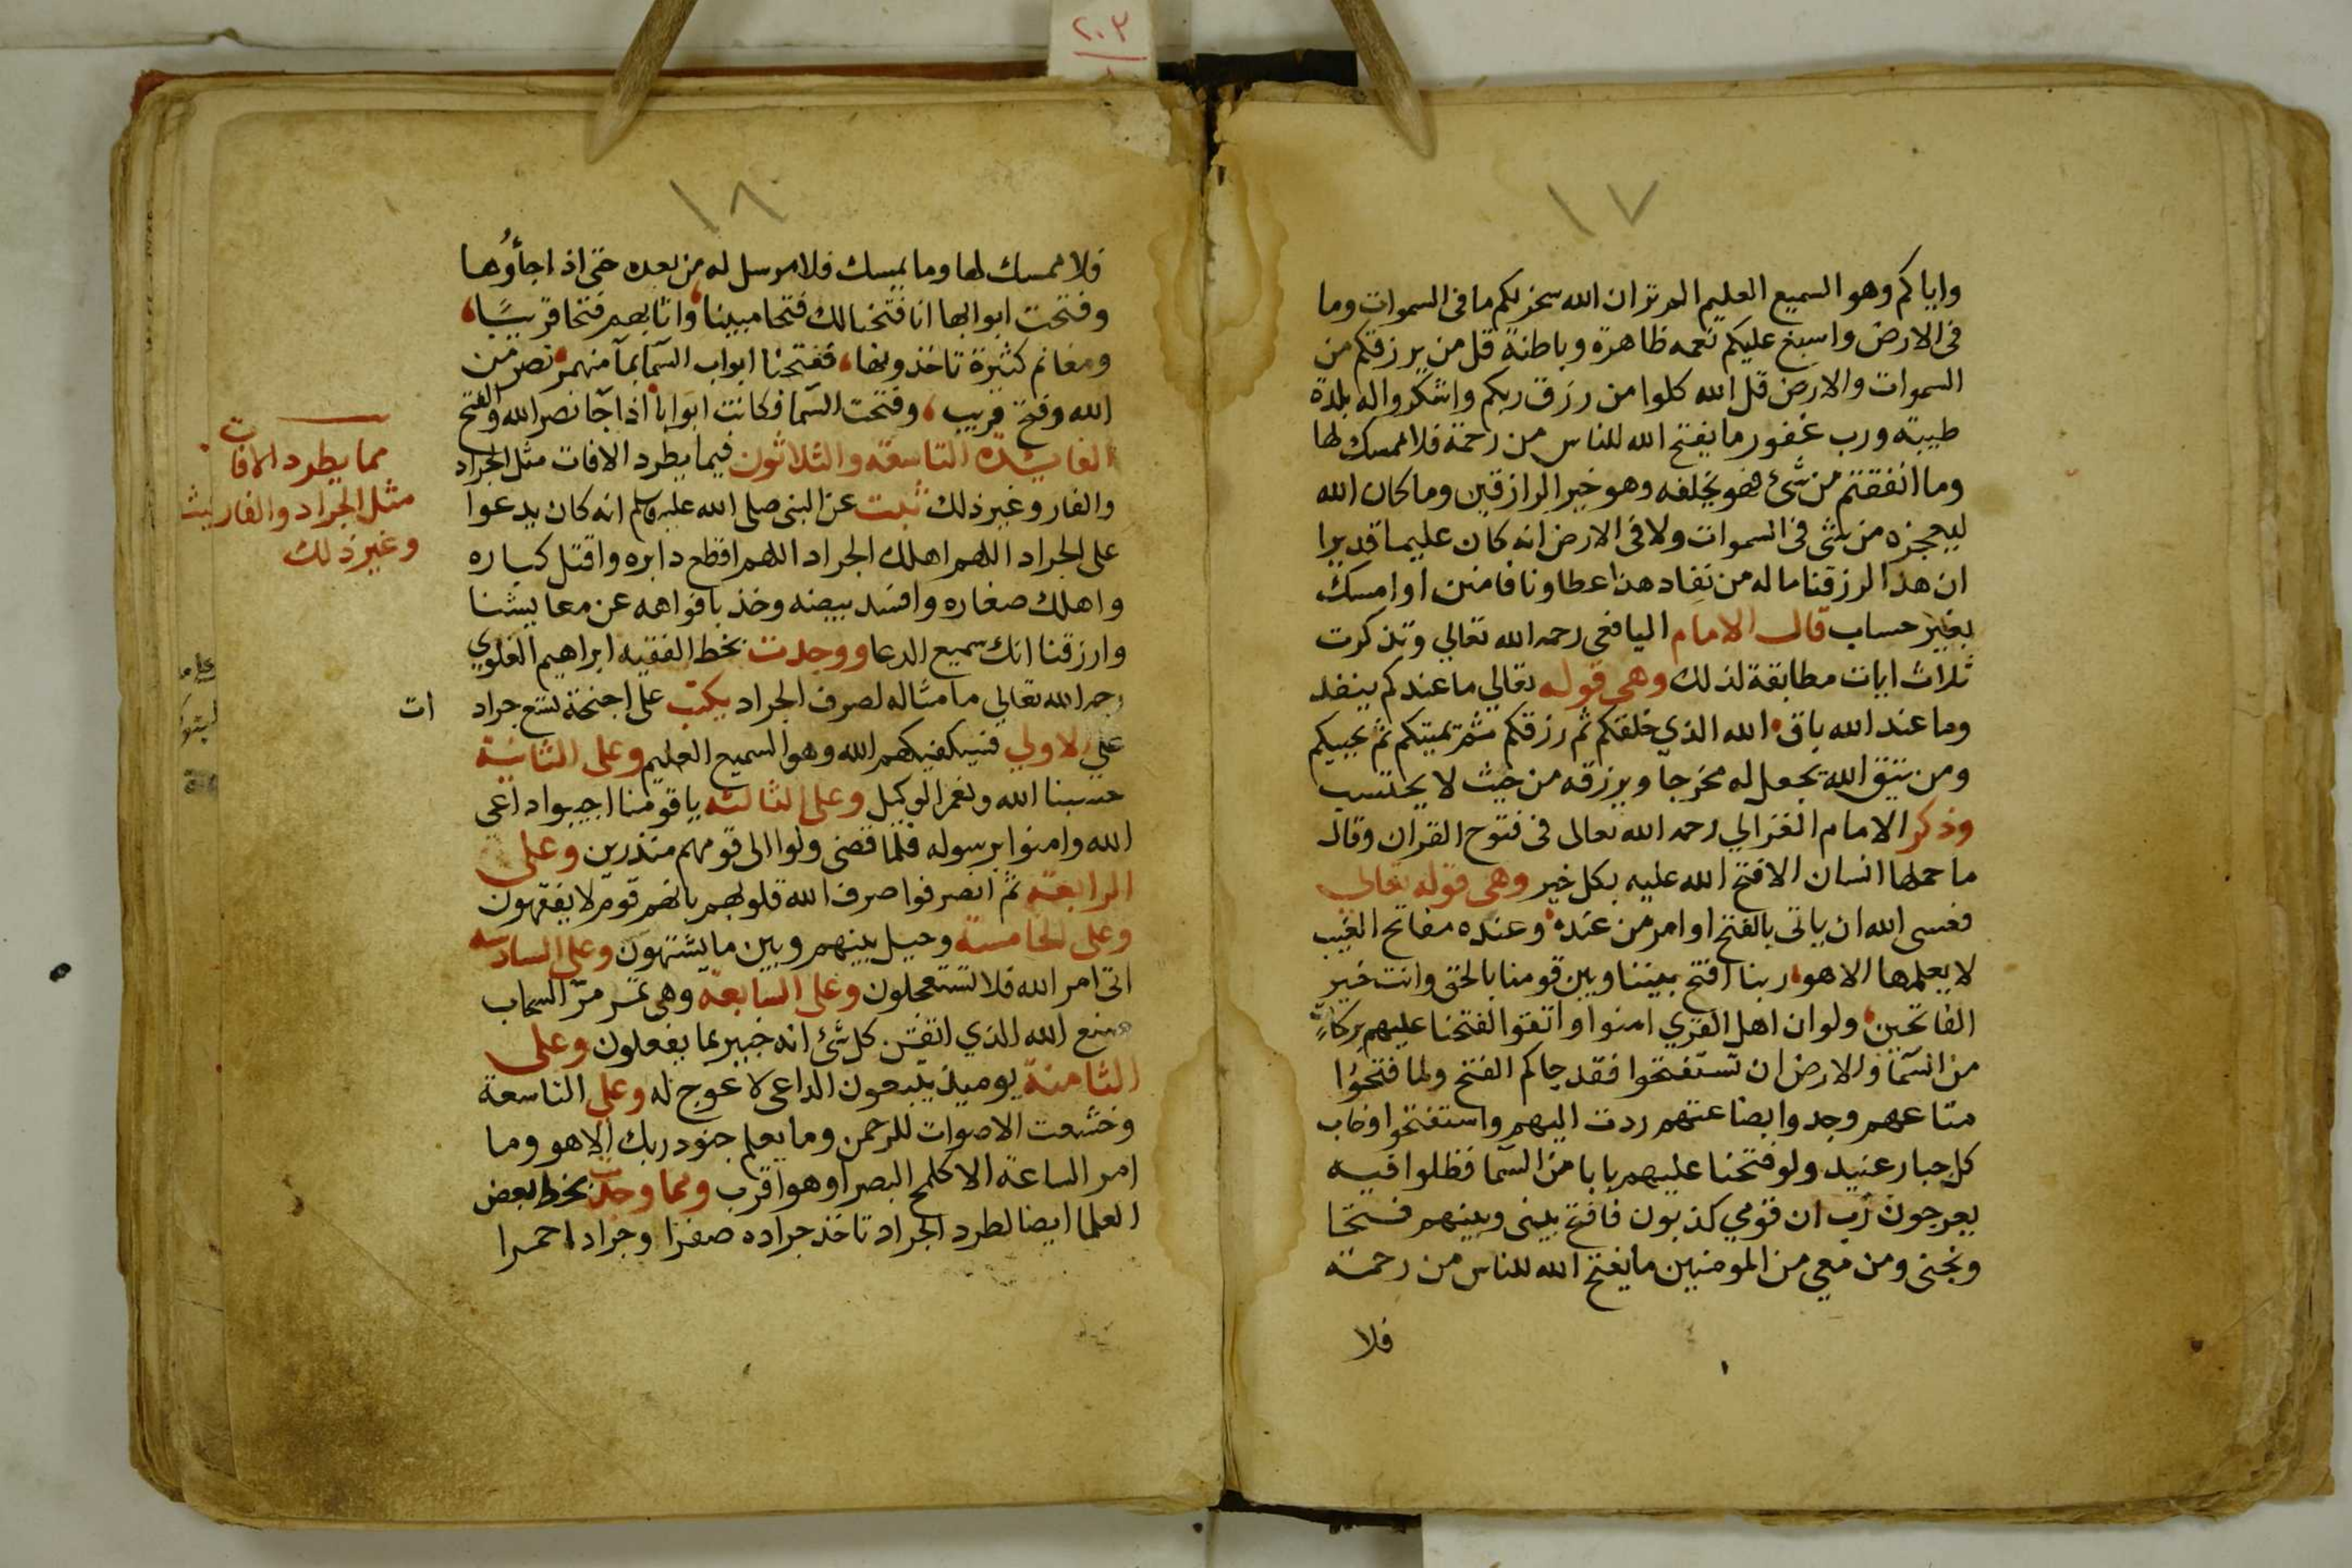 ٢٠٣
١٧
واياكم وهو السميع العليم الم تر ان الله سخر لكم ما فى السموات وما
فى الارض واسبغ عليكم نعمه ظاهرة وباطنة قل من يرزقكم من
السموات والارض قل الله كلوا من رزق ربكم واشكروا له بلدة
طيبة ورب غفور ما يفتح الله للناس من رحمة فلا ممسك لها
وما انفقتم من شئ فهو يخلفه وهو خير الرازقين وما كان الله
ليعجزه من شى فى السموات ولا فى الارض انه كان عليما قديرا
ان هذا لرزقنا ماله من نفاد هذا عطاونا فامنن او امسك
بغير حساب قال الامام اليافعى رحمه الله تعالي وتذكرت
ثلاث ايات مطابقة لذلك وهى قوله تعالي ما عندكم ينفد
وما عند الله باق الله الذي خلقكم ثم رزقكم ثم يميتكم ثم يحييكم
ومن يتق الله يجعل له مخرجا ويرزقه من حيث لا يحتسب
وذكر الامام الغزالي رحمه الله تعالى فى فتوح القران وقال
ما حملها انسان الا فتح الله عليه بكل خير وهى قوله تعالى
فعسى الله ان ياتى بالفتح او امر من عنده وعنده مفاتح الغيب
لا يعلمها الا هو ربنا افتح بيننا وبين قومنا بالحق وانت خير
الفاتحين ولو ان اهل القري امنوا واتقوا لفتحنا عليهم بركات
من السما والارض ان تستفتحوا فقد جاكم الفتح ولما فتحوا
متاعهم وجدوا بضاعتهم ردت اليهم واستفتحوا وخاب
كل جبار عنيد ولو فتحنا عليهم بابا من السما فظلوا فيه
يعرجون رب ان قومي كذبون فافتح بينى وبينهم فتحا
ونجنى ومن معي من المومنين ما يفتح الله للناس من رحمة
فلا
١٨
فلا ممسك لها وما يمسك فلا مرسل له من بعده حتى اذا جأوُها
وفتحت ابوابها انا فتحنا لك فتحا مبينا واثابهم فتحا قريبًا
ومغانم كثيرة تاخذونها ففتحنا ابواب السما بما منهمر نصر من
الله وفتح قريب وفتحت السما فكانت ابوابا اذا جا نصر الله والفتح
الفايدة التاسعة والثلاثون فيما يطرد الافات مثل الجراد
والفار وغير ذلك ثبت عن النبى صلى الله عليه وسلم انه كان يدعوا
على الجراد اللهم اهلك الجراد اللهم اقطع دابره واقتل كباره
واهلك صغاره وافسد بيضه وخذ بافواهه عن معايشنا
وارزقنا انك سميع الدعا ووجدت بخط الفقيه ابراهيم العلوي
رحمه الله تعالي ما مثاله لصرف الجراد يكتب على اجنحة تسع جراد ات
علي الاولي فسيكفيكهم الله وهو السميع العليم وعلى الثانية
حسبنا الله ونعم الوكيل وعلى الثالثه يا قومنا اجيبوا داعي
الله وامنوا برسوله فلما قضى ولوا الى قومهم منذرين وعلى
الرابعة ثم انصرفوا صرف الله قلوبهم بانهم قوم لا يفقهون
وعلى الخامسة وحيل بينهم وبين ما يشتهون وعلى السادسه
اتى امر الله فلا تستعجلون وعلى السابعة وهى تمر مرّ السحاب
صنع الله الذي اتقن كل شئ انه خبير بما يفعلون وعلى
الثامنة يوميذ يتبعون الداعى لا عوج له وعلى التاسعة
وخشعت الاصوات للرحمن وما يعلم جنود ربك الا هو وما
امر الساعة الا كلمح البصر او هو اقرب ومما وجدت بخط بعض
العلما ايضا لطرد الجراد تاخذ جراده صفرا وجراد احمرا
مما يطرد الافات
مثل الجراد والفار
وغير ذلك